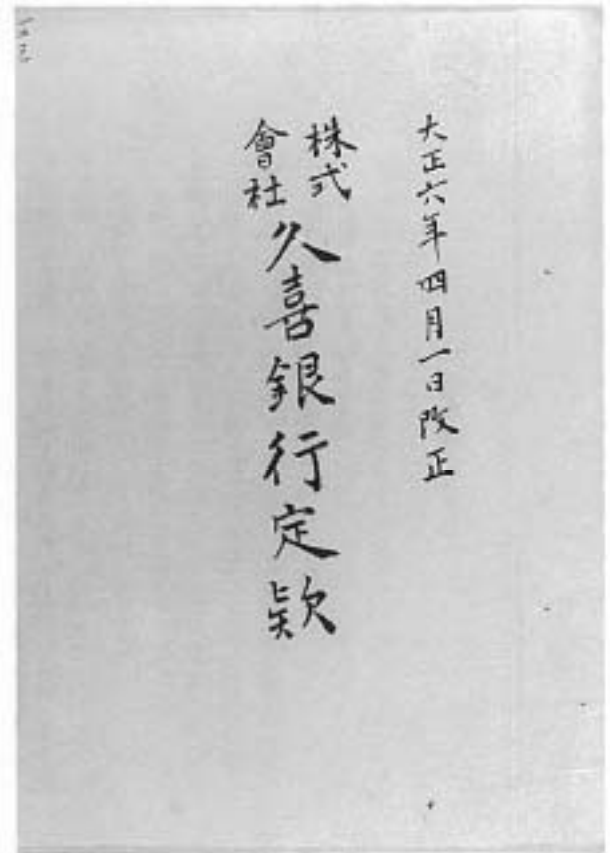 大正六年四月一日改正
株式會社久喜銀行定款